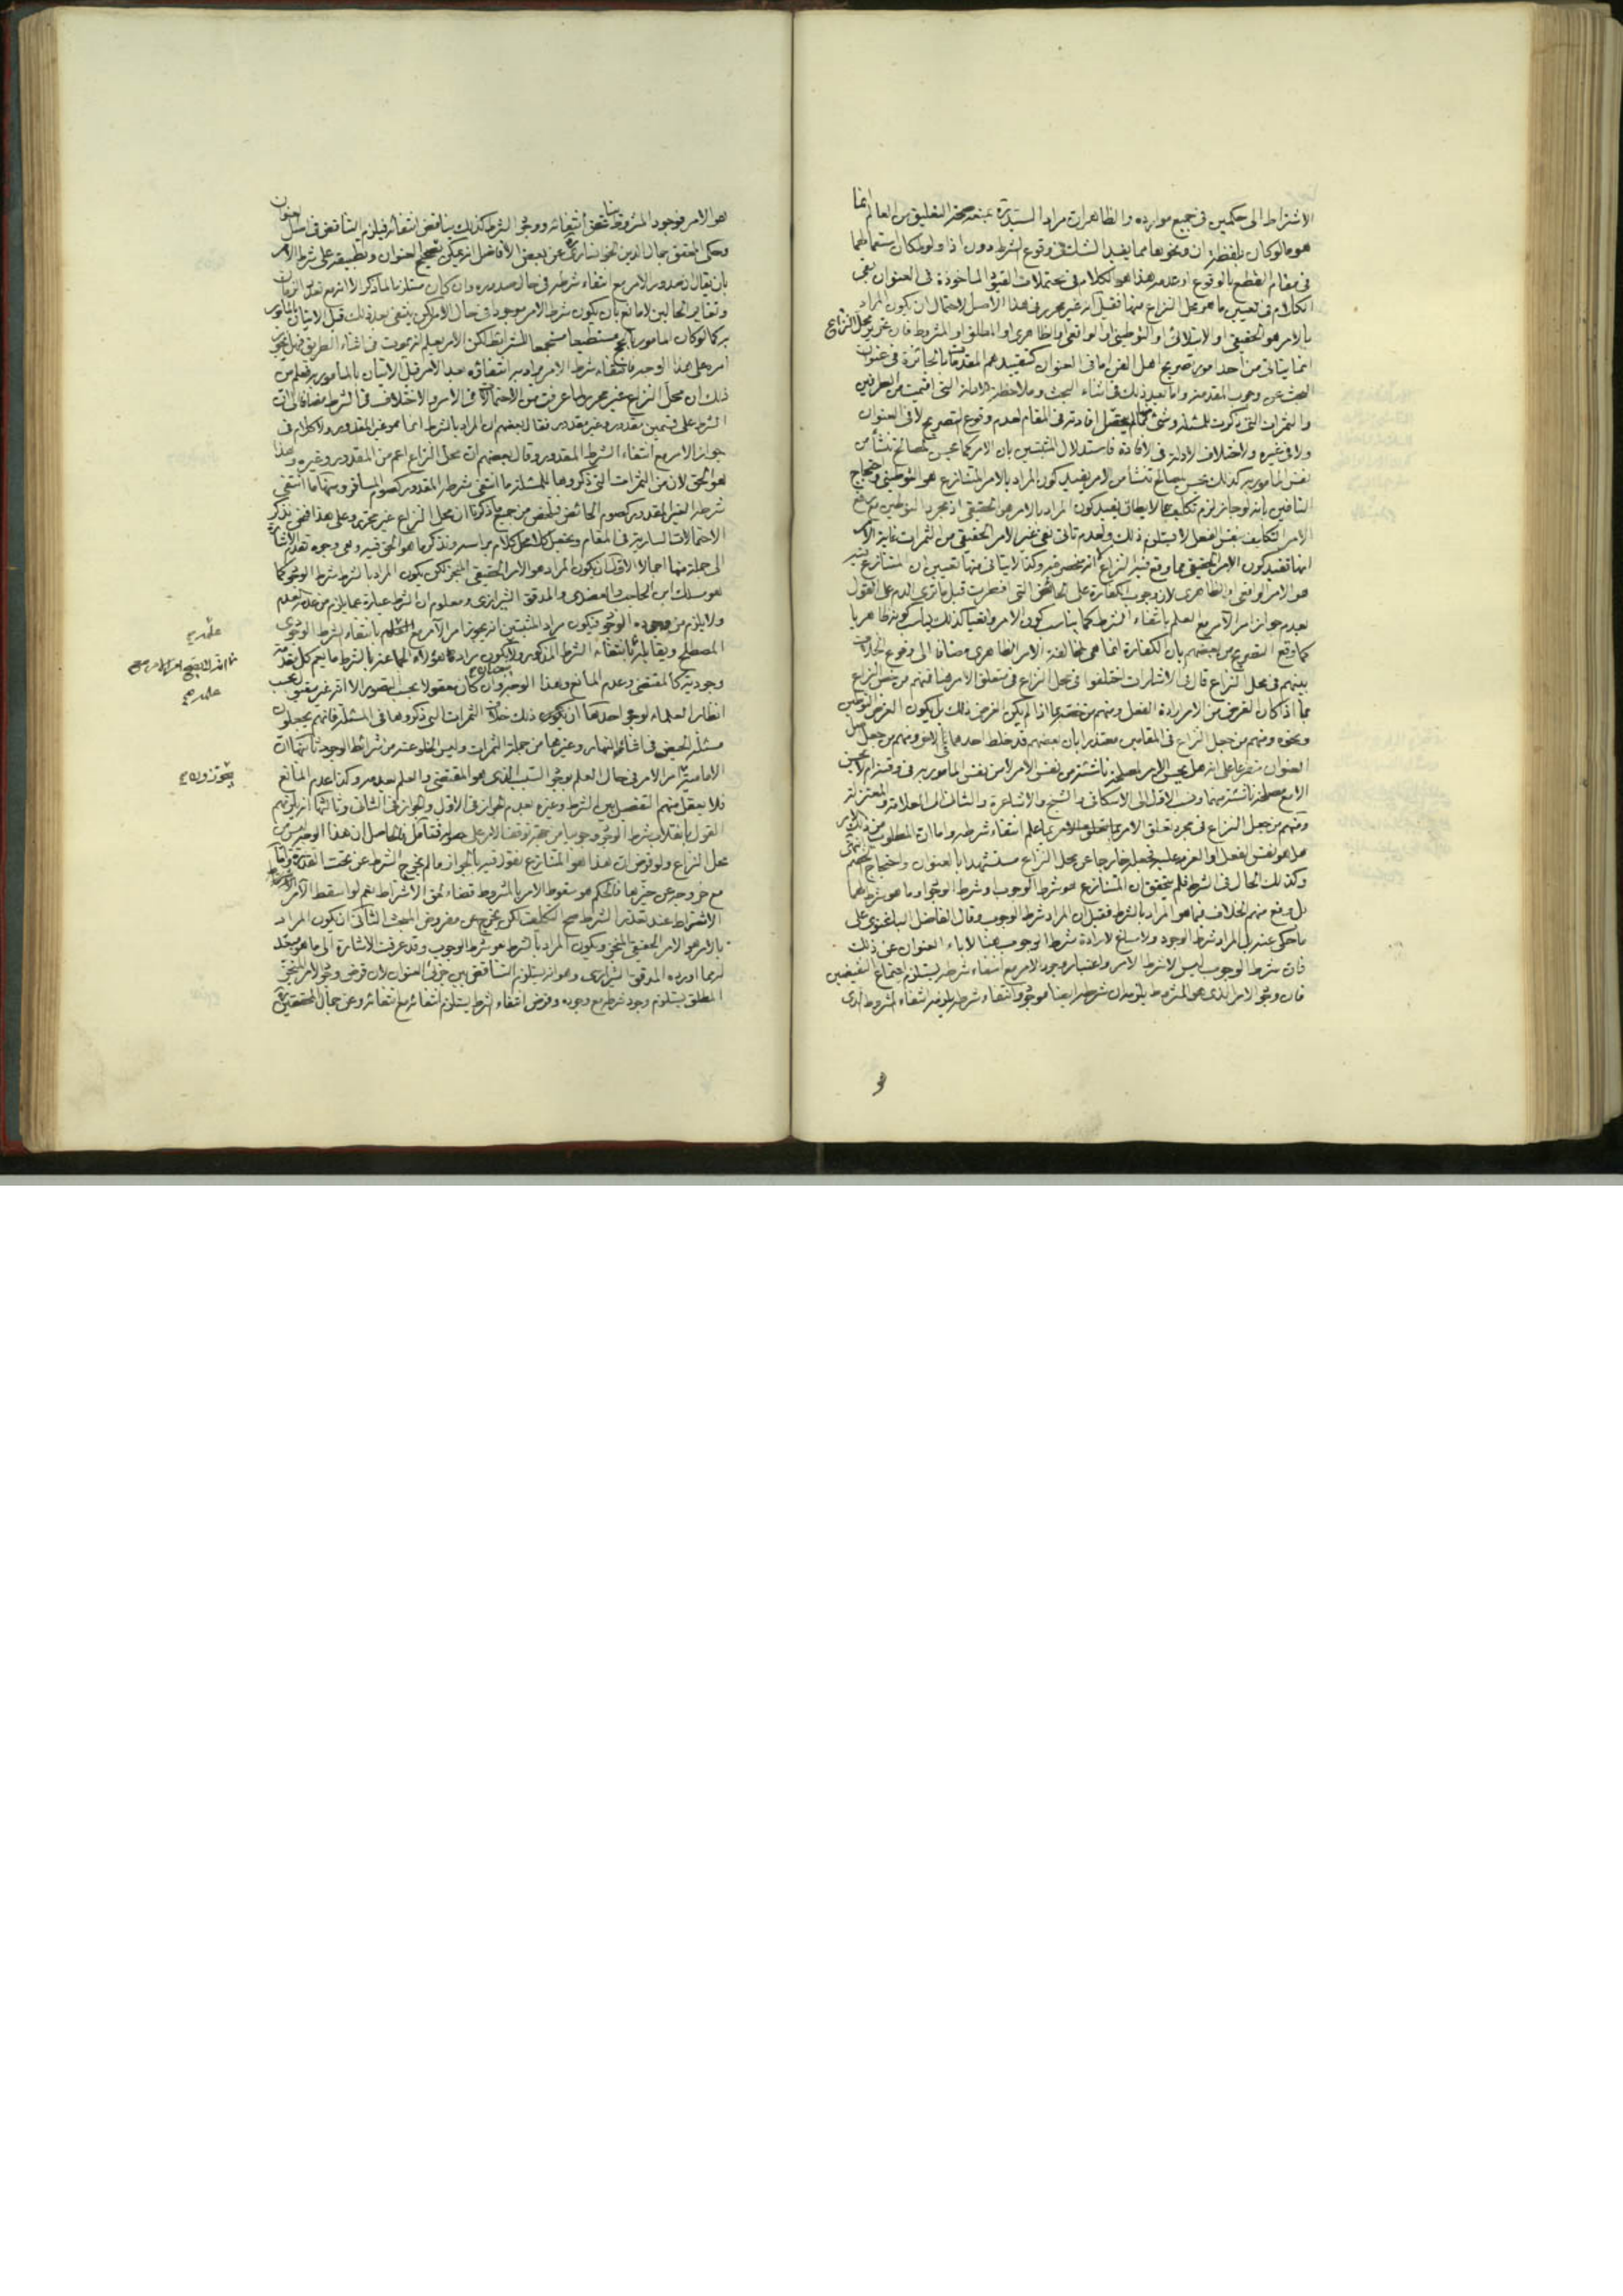 الاشتراط الى حكمين في جميع موارده والظاهر ان مراد السيد ره بمنعه صحة التعليق من العالم انما
هو ما لو كان بلفظة ان ونحوها مما يفيد الشك في وقوع الشرط دون اذا ولو كان استعمالهما
في مقام القطع بالوقوع او عدمه هذا هو الكلام في محتملات القيود المأخوذة في العنوان بقى
الكلام في تعيين ما هو محل النزاع منها فقيل انه غير محرر في هذا الاصل لاحتمال ان يكون المراد
بالامر هو الحقيقي او الابتلائي او التوطيني او الواقعي او الظاهري او المطلق او المشروط فان تحرير محل النزاع
انما يتأتى من احد امور تصريح اهل الفن اما في العنوان كتقييدهم المقدمات بالجائزة في عنوان
البحث عن وجوب المقدمة واما بعد ذلك في اثناء البحث وملاحظة الادلة التي اقيمت من الطرفين
والثمرات التي ذكرت للمسئلة وشئ منها لم يحصل افادته في المقام لعدم وقوع التصريح لا في العنوان
ولا في غيره ولاختلاف الادلة في الافادة فاستدلال المثبتين بان الامر كما يحسن لمصالح تنشأ من
نفس المأمور به كذلك يحسن لمصالح تنشأ من الامر يفيد كون المراد بالامر المتنازع هو التوطيني واحتجاج
النافين بانه لو جاز لزم تكليف ما لا يطاق يفيد كون المراد بالامر هو الحقيقي اذ مجرد التوطين مع رفع
الامر التكليف بنفس الفعل لا يستلزم ذلك ولعدم تأتى نفى غير الامر الحقيقي من الثمرات غاية الامر
انها تفيد كون الامر الحقيقي مما وقع فيه النزاع لا انه منحصر فيه وكذا لا يتأتى منها تعيين ان المتنازع فيه
هو الامر الواقعي او الظاهري لان وجوب الكفارة على الحائض التي افطرت قبل ما ترى الدم على القول
بعدم جواز امر الآمر مع العلم بانتفاء الشرط كما يناسب كون الامر واقعيا كذلك يناسب كونه ظاهريا
كما وقع التصريح من بعضهم بان الكفارة انما هي لمخالفة الامر الظاهري مضافا الى وقوع الخلاف
بينهم في محل النزاع قال في الاشارات اختلفوا في محل النزاع في متعلق الامر هنا فمنهم من خص النزاع
بما اذا كان الغرض من الامر ارادة الفعل ومنهم من خصه بما اذا لم يكن الغرض ذلك بل يكون الغرض التوطين
ونحوه ومنهم من جعل النزاع في المقامين معتذرا بان بعضهم قد خلط احدهما بالاخر ومنهم من جعل
العنوان متفرعا على انه هل يحسن الامر لمصلحة ناشئة من نفس الامر لا من نفس المأمور به في وقته ام لا يحسن
الا مع مصلحة ناشئة منهما ونسب الاول الى الاسكافي والشيخ والاشاعرة والثاني الى العلامة والمعتزلة
ومنهم من جعل النزاع في مجرد تعلق الامر بما علم انتفاء شرطه واما ان المطلوب من ذلك
هل هو نفس الفعل او العزم عليه فجعله خارجا عن محل النزاع مستشهدا بالعنوان واحتجاج بعضهم انتهى
وكذلك الحال في الشرط فلم يتحقق ان المتنازع هو شرط الوجوب او شرط الوجود او ما هو شرط لهما
بل وقع منهم الخلاف فيما هو المراد بالشرط فقيل ان المراد شرط الوجوب وقال الفاضل الباغنوي على
ما حكى عنه ان المراد شرط الوجود ولا مساغ لارادة شرط الوجوب هنا لاباء العنوان عن ذلك
فان شرط الوجوب ليس الا شرط الامر واعتبار وجود الامر مع انتفاء شرطه يستلزم اجتماع النقيضين
فان وجود الامر الذي هو المشروط يلزمه ان شرطه ايضا موجود وانتفاء شرطه يلزمه انتفاء المشروط الذي
هو الامر فوجود المشروط يناقض انتفائه ووجود الشرط كذلك يناقض انتفائه فيلزم التناقض في اصل العنوان
وحكى المحقق جمال الدين الخوانساري عن بعض الافاضل انه يمكن تصحيح العنوان وتطبيقه على شرط الامر
بان يقال ان صدور الامر مع انتفاء شرطه في حال صدوره وان كان مستلزما لما ذكر الا انه مع تعدد الزمان
وتغاير الحالين لا مانع بان يكون شرط الامر موجودا في حال الامر لكن ينتفى بعد ذلك قبل الاتيان بالمأمور
به كما لو كان المأمور بالحج مستطيعا مستجمعا للشرائط لكن الآمر يعلم انه يموت في اثناء الطريق فهل يجوز
امره على هذا الوجه فانتفاء شرط الامر يراد به انتفاؤه بعد الامر قبل الاتيان بالمأمور به فعلم من
ذلك ان محل النزاع غير محرر لما عرفت من الاحتمالات في الامر والاختلاف في الشرط مضافا الى ان
الشرط على قسمين مقدور وغير مقدور فقال بعضهم ان المراد بالشرط انما هو غير المقدور ولا كلام في
جواز الامر مع انتفاء الشرط المقدور وقال بعضهم ان محل النزاع اعم من المقدور وغيره وهذا
هو الحق لان من الثمرات التي ذكروها للمسئلة ما انتفى شرطه المقدور كصوم المسافر ومنها ما انتفى
شرطه الغير المقدور كصوم الحائض فتلخص من جميع ما ذكرنا ان محل النزاع غير محرر وعلى هذا فنحن نذكر
الاحتمالات السارية في المقام ونعقب كلا بكلام برأسه ونذكر ما هو الحق فيه وهي وجوه تقدم الاشارة
الى جملة منها اجمالا الاول ان يكون المراد هو الامر الحقيقي المنجز لكن يكون المراد بالشرط شرط الوجود كما
هو مسلك ابن الحاجب والعضدي والمدقق الشيرازي ومعلوم ان الشرط عبارة عما يلزم من عدمه العدم
ولا يلزم من وجوده الوجود فيكون مراد المثبتين انه يجوز امر الآمر مع العلم بانتفاء الشرط الوجودي
المصطلح ويقابله
وجودية كالمقتضى وعدم المانع وهذا الوجه وان كان معقولا بحسب التصور الا انه غير
انظار العلماء لوجوه احدها ان يكون ذلك خلاف الثمرات التي ذكروها في المسئلة فانهم يجعلون
مسئلة الحيض في اثناء النهار وغيرها من جملة الثمرات وليس الخلو عنه من شرائط الوجود ثانيها ان
الامامية امر الامر في حال العلم بوجود السبب الذي هو المقتضى والعلم بعدمه وكذا عدم المانع
فلا يعقل منهم التفصيل بين الشرط وغيره بعدم الجواز في الاول والجواز في الثاني وثالثها انه يلزمهم
القول بانقلاب شرط الوجود وجوبيا من جهة توقف الامر على حصوله فتأمل فالحاصل ان هذا الوجه ليس من
محل النزاع ولو فرض ان هذا هو المتنازع نقول فيه بالجواز ما لم يخرج الشرط عن تحت القدرة واما
مع خروجه عن حيزها فالحكم هو سقوط الامر بالمشروط قضاء لحق الاشتراط نعم لو اسقط الآمر
الاشتراط عند تعذر الشرط صح التكليف لكن يخرج عن مفروض المبحث الثاني ان يكون المراد
بالامر هو الامر الحقيقي المنجز ويكون المراد بالشرط هو شرط الوجوب وقد عرفت الاشارة الى ما هو
لهما اورده المدقق الشيرازي وهو انه يستلزم التناقض بين جزئى العنوان لان فرض وجود الامر المنجز
المطلق يستلزم وجود شرطه مع وجوده وفرض انتفاء الشرط يستلزم انتفائه مع انتفائه وعن جمال المحققين